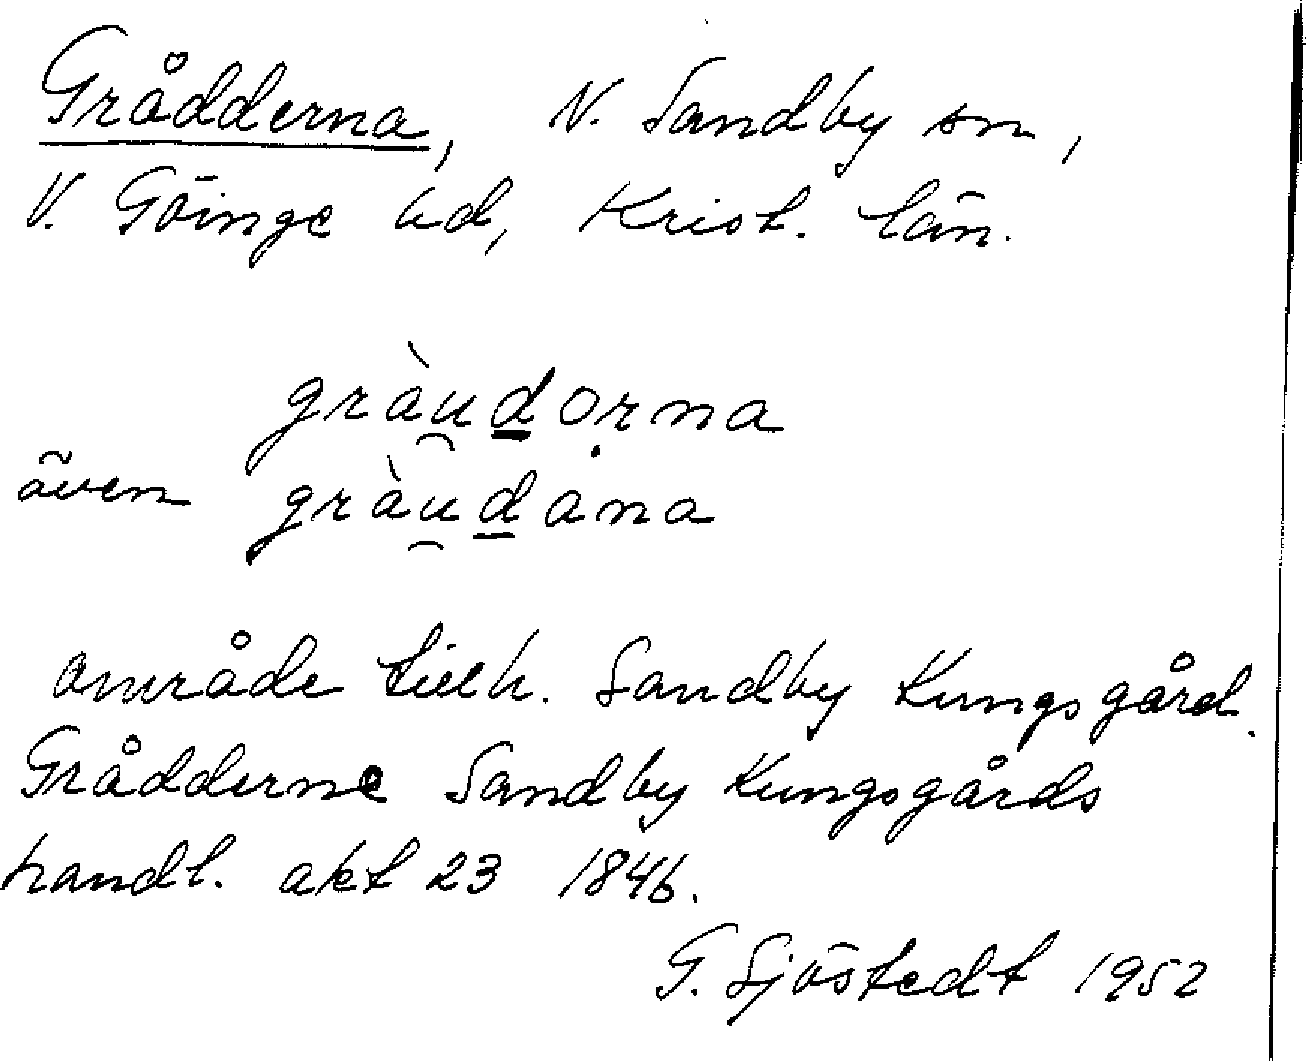 Grådderna, N. Sandby sn,
V. Göinge hd, Krist. län.
gràu̯ḏorṇa
även gràu̯ḏana
område tillh. Sandby Kungsgård.
Grådderne Sandby Kungsgårds
handl. akt 23 1846.
G. Sjöstedt 1952